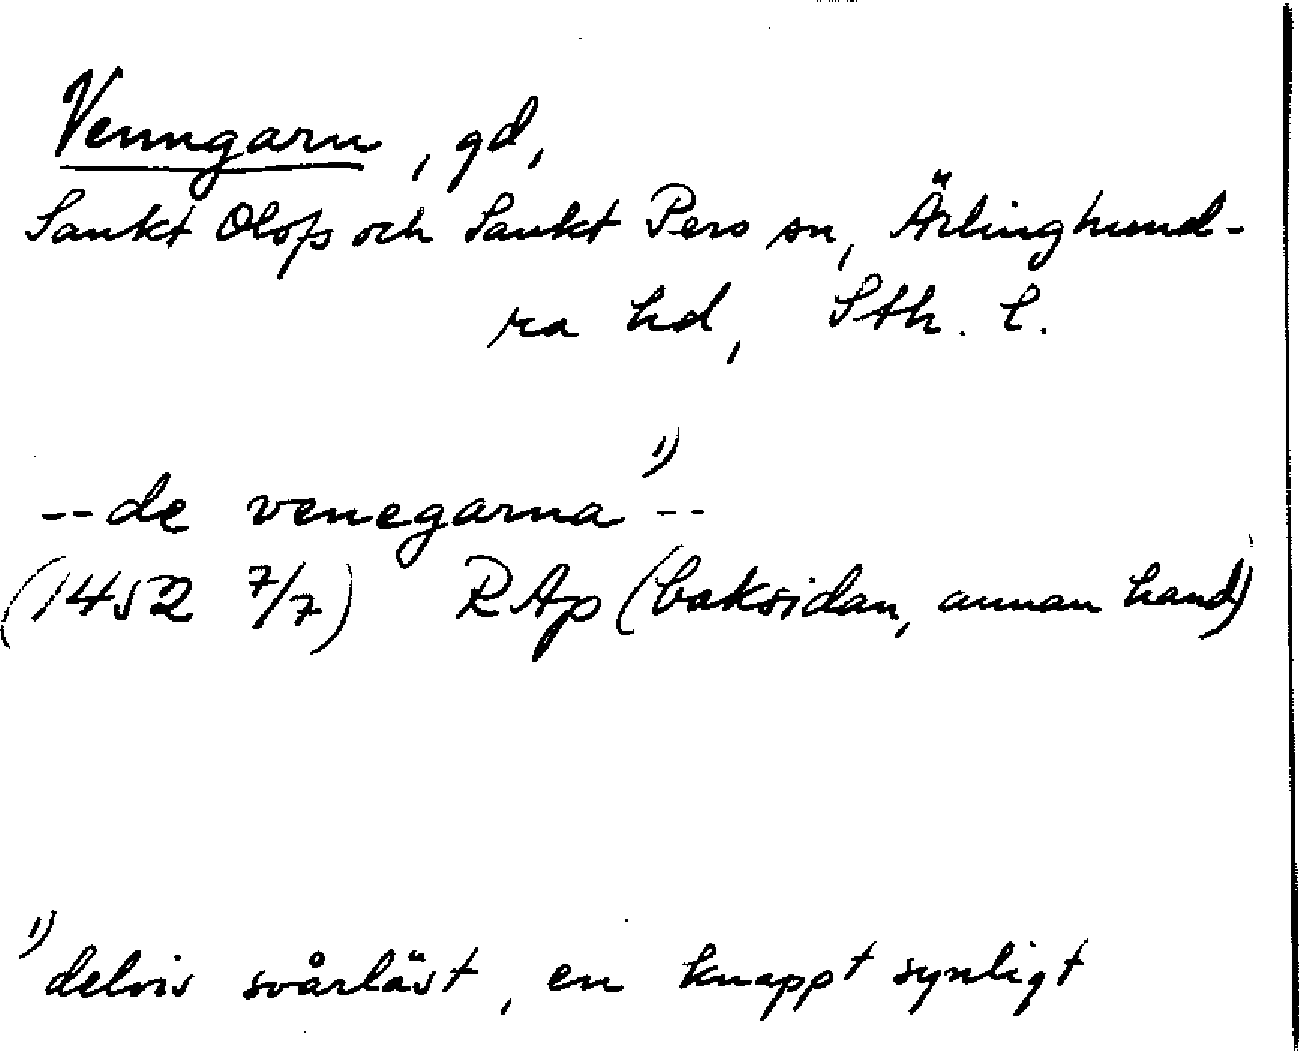 Venngarn, gd,
Sankt Olofs och Sankt Pers sn, Ärlinghund-
ra hd, Sth. l.
1)
--de venegarna--
(1452 7/7) RAp (baksidan, annan hand)
1) delvis svårläst, en knappt synligt